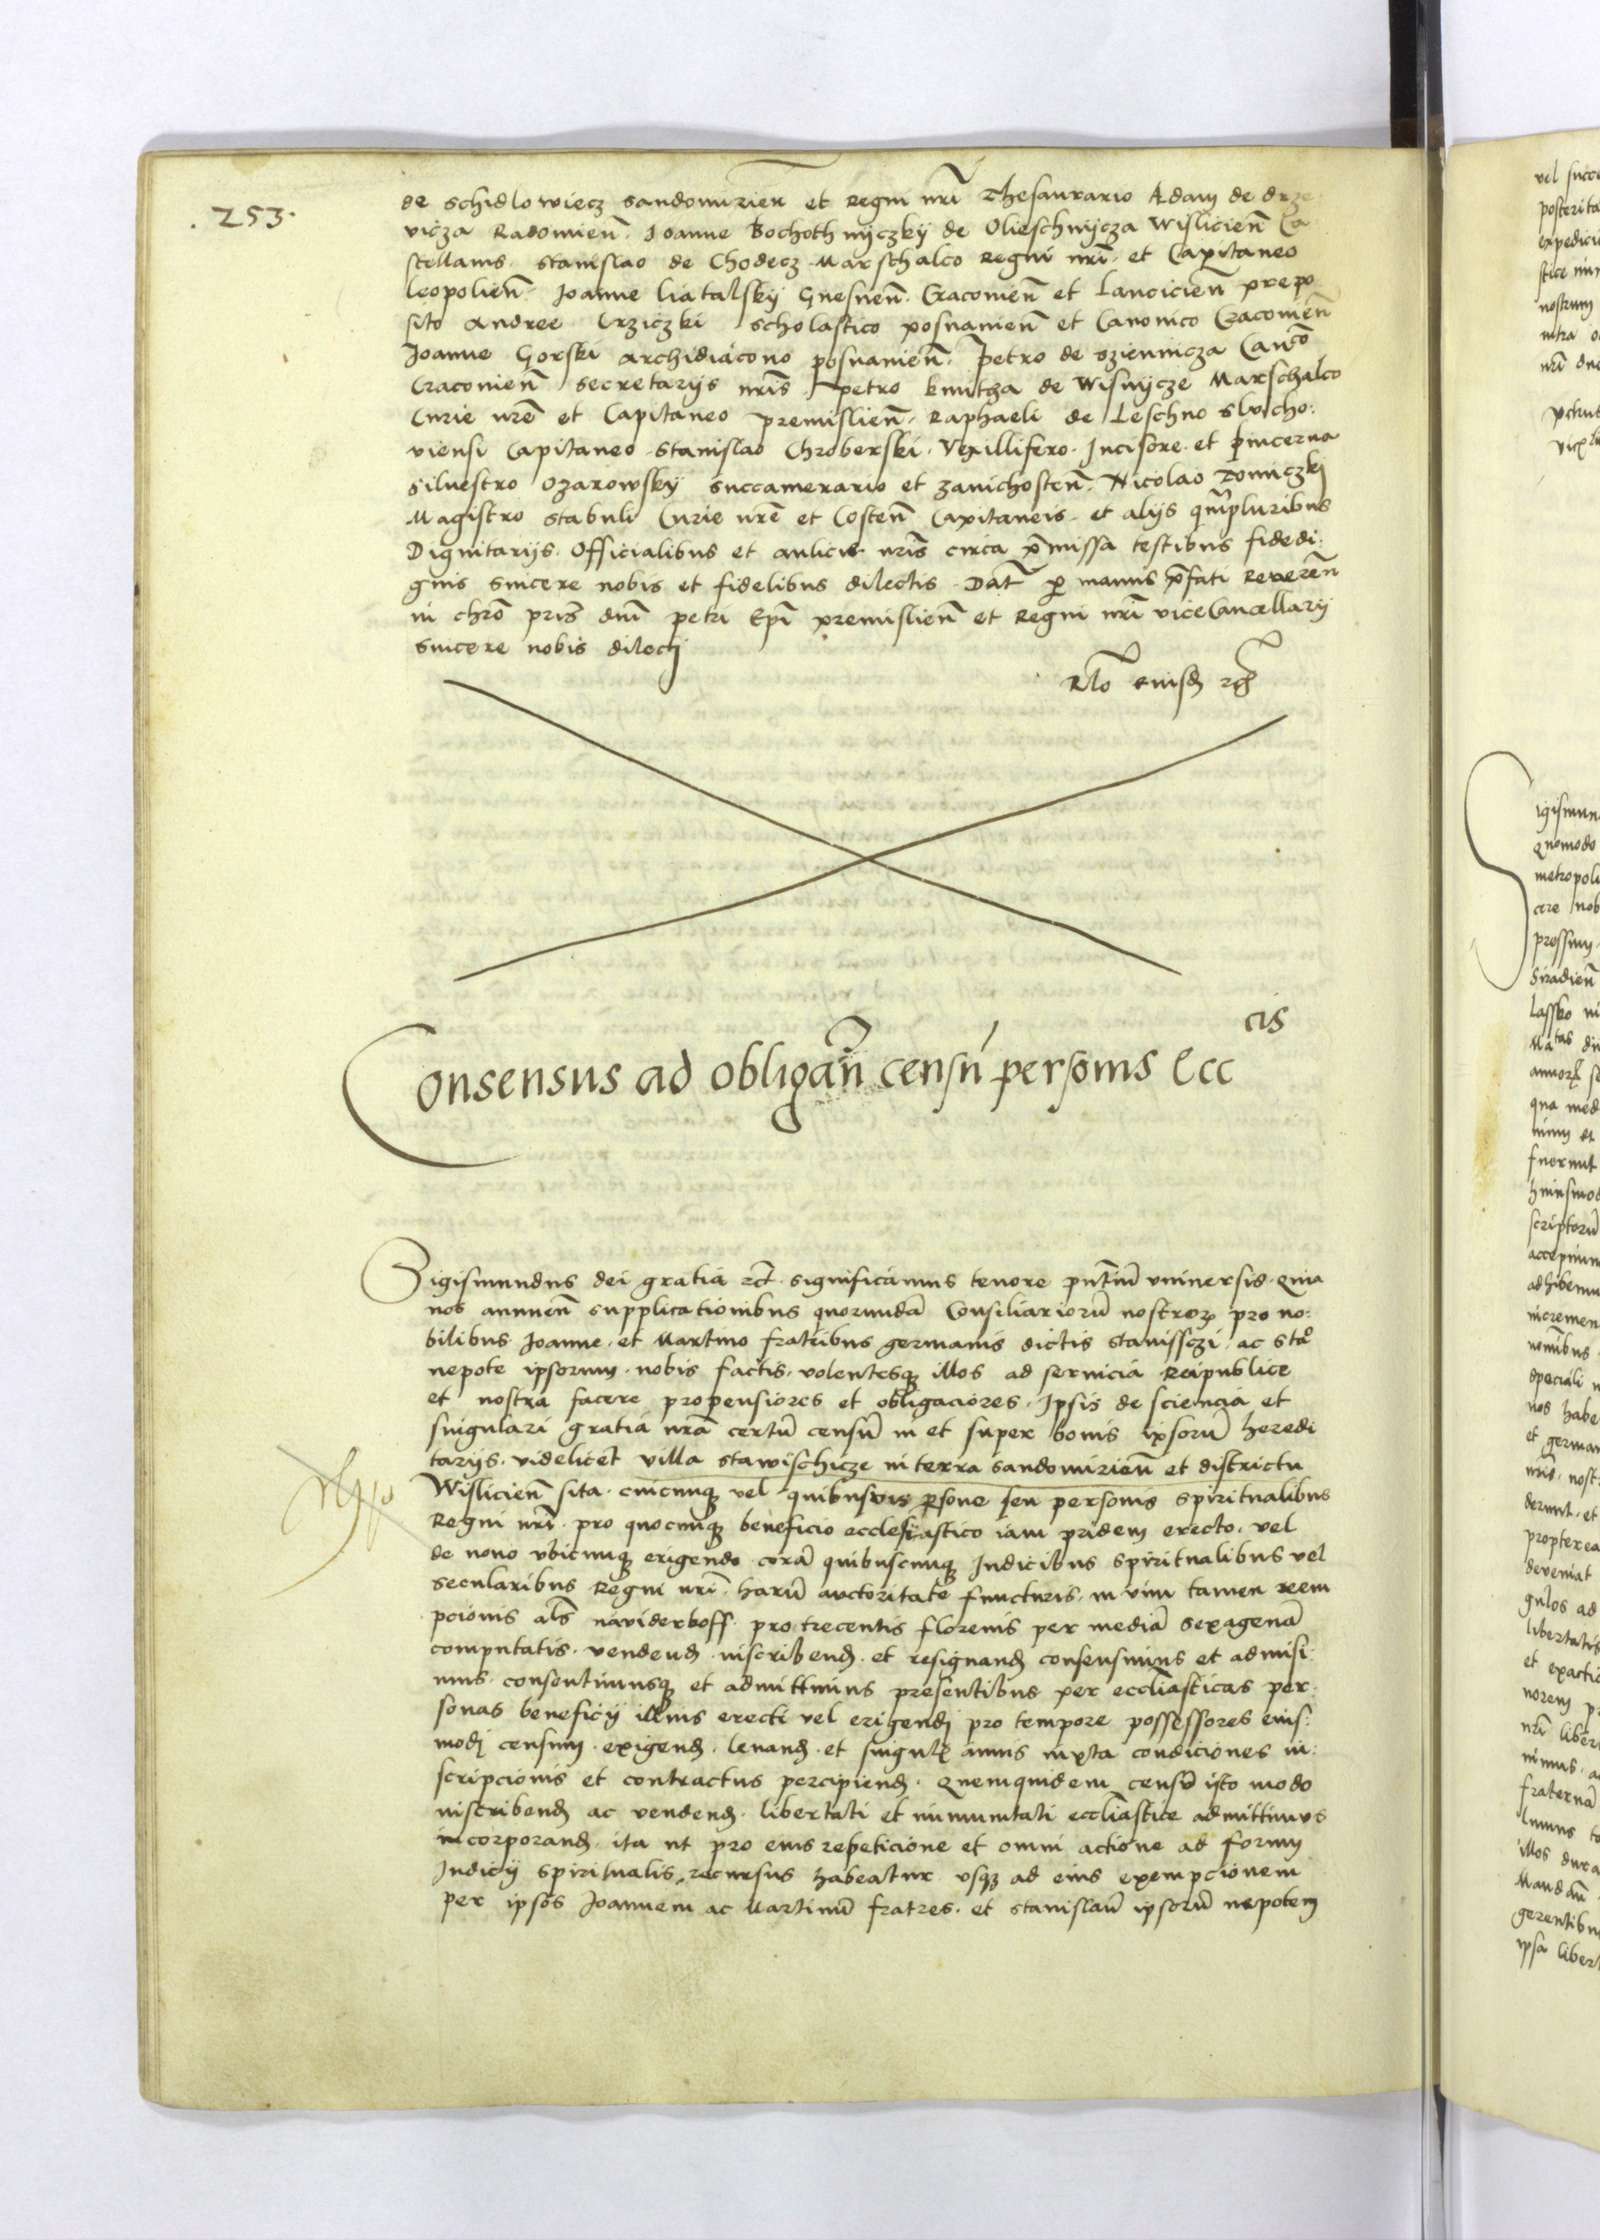 . 253 .
de Schidlowiecz Sandomirien et Regni nri Thesaurario Adam de drze
vicza Radomien̄. Ioanne Bochothnyczkÿ de Olieschnÿcza Wislicien̄ Ca
stellanis. Stanislao de Chodecz Marschalco Regni nri. et Capitaneo
leopolien̄. Ioanne liatalskÿ Gnesnen̄. Cracouien̄ et Lancicien̄ prepo
sito Andree Crziczki scholastico posnanien̄ et Canonico Cracouien̄
Joanne Gorski archidiacono posnanien̄. Petro de
Cracouien̄ secretarijs nris petro kmitha de Wisnÿcze Marschalco
Curie nre et Capitaneo premislien̄. Raphaeli de Leschno slucho:
viensi Capitaneo Stanislao Chroberski. Vexillifero. Incisore. et pincerna
siluestro Ozarowskÿ succamerario et zauichosten̄. Nicolao Tomiczkj
Magistro stabuli Curie nre et Costen̄ Capitaneis. et alijs qmpluribus
Dignitarijs. Officialibus et aulicis nris circa p̄missa testibus fidedi:
gnis sincere nobis et fidelibus dilectis. Dat p manus p̄fati Reueren̄
in chro pris dni petri Epi premislien̄ et Regni nri vicecancellarij
sincere nobis dilecti
Rlo eiusd
Consensus ad obligan̄ censū personis Ecccis
Sigismundus dei gratia rct. significamus tenore pn̄tium vniuersis. quia
nos annuen̄ supplicationibus quorundā Consiliariorū nostrorꝝ pro no:
bilibus Joanne. et Martino fratribus germanis dictis stanissczi. ac sta°
nepote ipsorum. nobis factis. volentesqꝫ illos ad seruicia Reipublice
et nostra facere propensiores et obligaciores. Ipsis de sciencia et
singulari gratia nrā certū censū in et super bonis ipsorū heredi
tarijs. videlicet villa stawischicze in terra sandomirien̄ et districtu
Wislicien̄ sita. cuicunqꝫ vel quibusvis psone seu personis spiritualibus
Regni nri. pro quocunqꝫ beneficio ecclesiastico iam pridem erecto. vel
de nouo vbicunqꝫ erigendo corā quibuscunqꝫ Iudicibus spiritualibus vel
secularibus Regni nri. harū auctoritate functuris. in vim tamen reem
pcionis als naviderkoff. pro trecentis florenis per mediā sexagenā
computatis. vendend. inscribend. et resignand consensimus et admisi:
mus. consentimusqꝫ et admittimus presentibus per eccliasticas per
sonas beneficij illius erecti vel erigendi pro tempore possessores eius:
modi censum. exigend. leuand. et singulis annis iuxta condiciones in:
scripcionis et contractus percipiend. Quemquidem censū isto modo
inscribend ac vendend. libertati et immunitati eccliastice admittimus
incorporand. ita ut pro eius repeticione et omni actione ad forum
Iudicij spiritualis recursus habeatur. vsqꝫ ad eius exempcionem
per ipsos Joannem ac Martinū fratres. et stanislaū ipsorū nepotem
vel succe
posterita
expedici
nostrum
intra
nri
igismun
Quomodo
metropoli
cere nob
Siradien̄
Lassko
qua med
fuerunt
huiusmod
scriptorū
accepimu
adhibemu
incremen
nominibus
speciali
nos habe
et german
propterea
deveniat
gulos ad
libertatis
et exactio
norem
nri liber
fraternā
illos dura
Mandam̄
gerentibus
ipsa libert